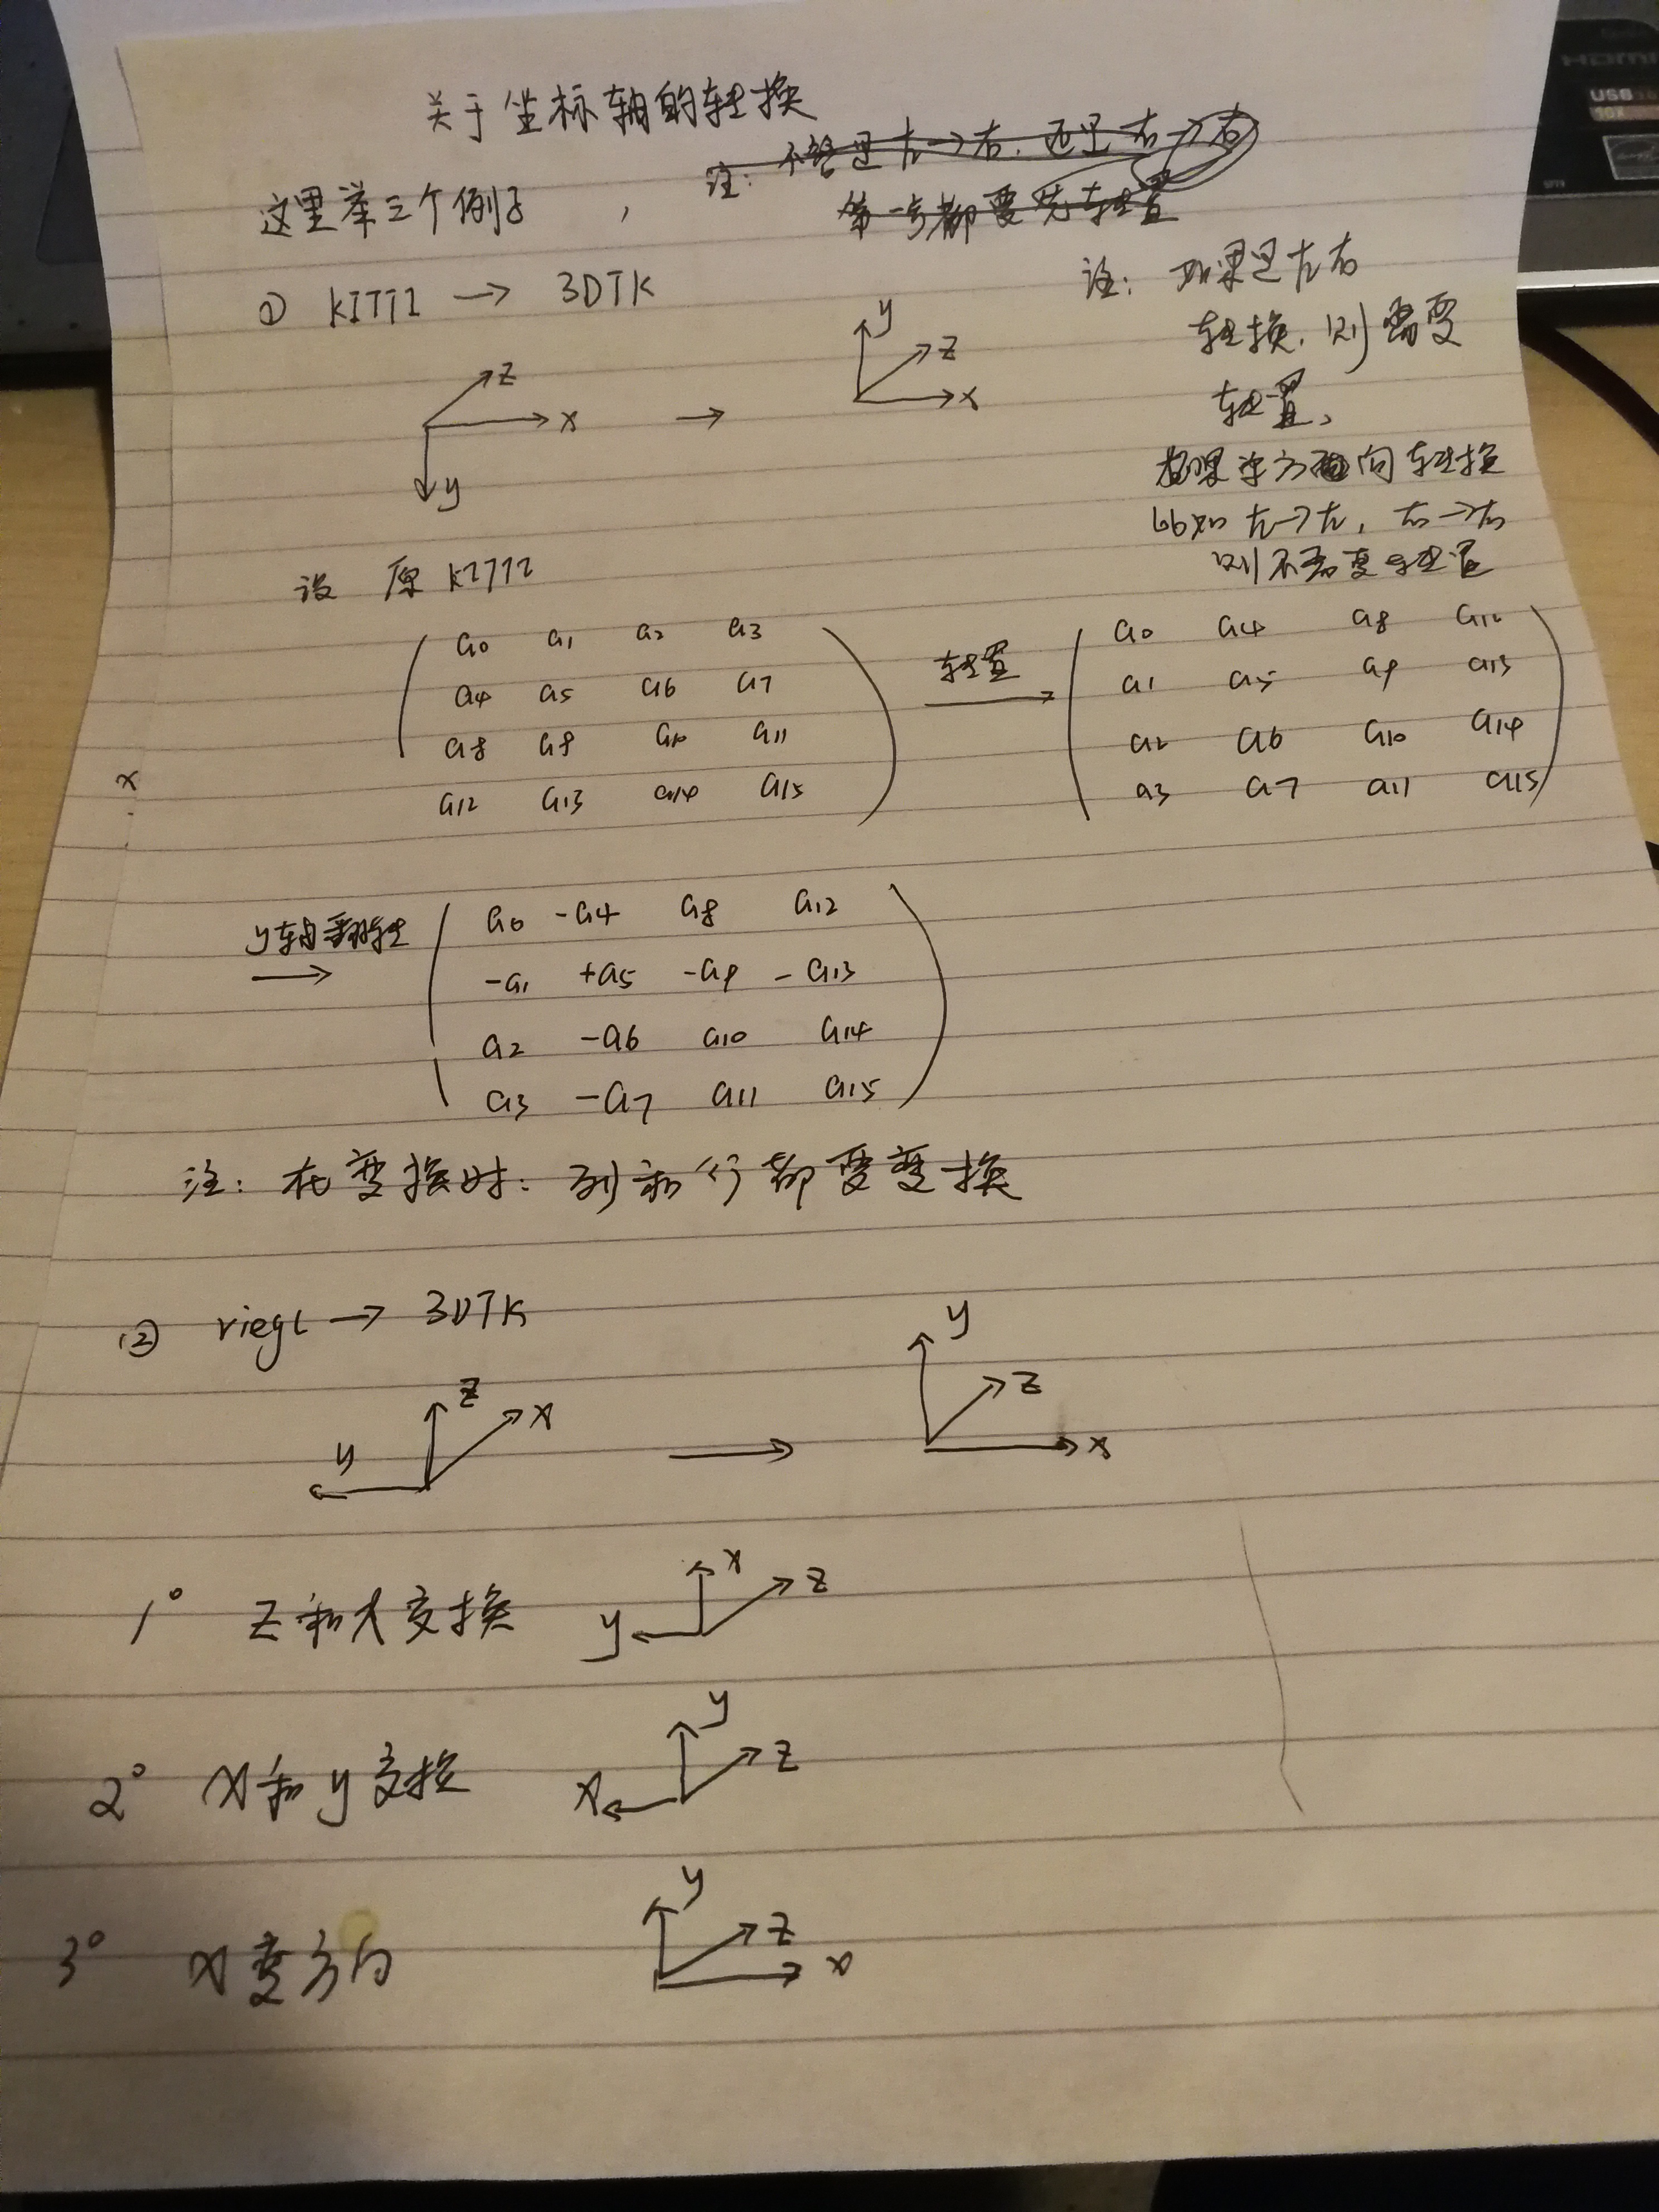 关于坐标轴的转换
注: 不管是左→右, 还是右→右
第一步都要先转置
这里举三个例子,
① KITTI → 3DTK
注: 如果是左右
转换, 则需要
转置,
如果单方向转换
比如左→左, 右→右
则不需要转置
z
x
y
→
y
z
x
设 原KITTI
a0 a1 a2 a3
a4 a5 a6 a7
a8 a9 a10 a11
a12 a13 a14 a15
转置
a0 a4 a8 a12
a1 a5 a9 a13
a2 a6 a10 a14
a3 a7 a11 a15
x
y轴翻转
a0 -a4 a8 a12
-a1 +a5 -a9 -a13
a2 -a6 a10 a14
a3 -a7 a11 a15
注: 在变换时: 列和行都要变换
② riegl → 3DTK
z
x
y
→
y
z
x
1° z和x交换
x
z
y
2° x和y交换
y
z
x
3° x变方向
y
z
x
HDMI
USB